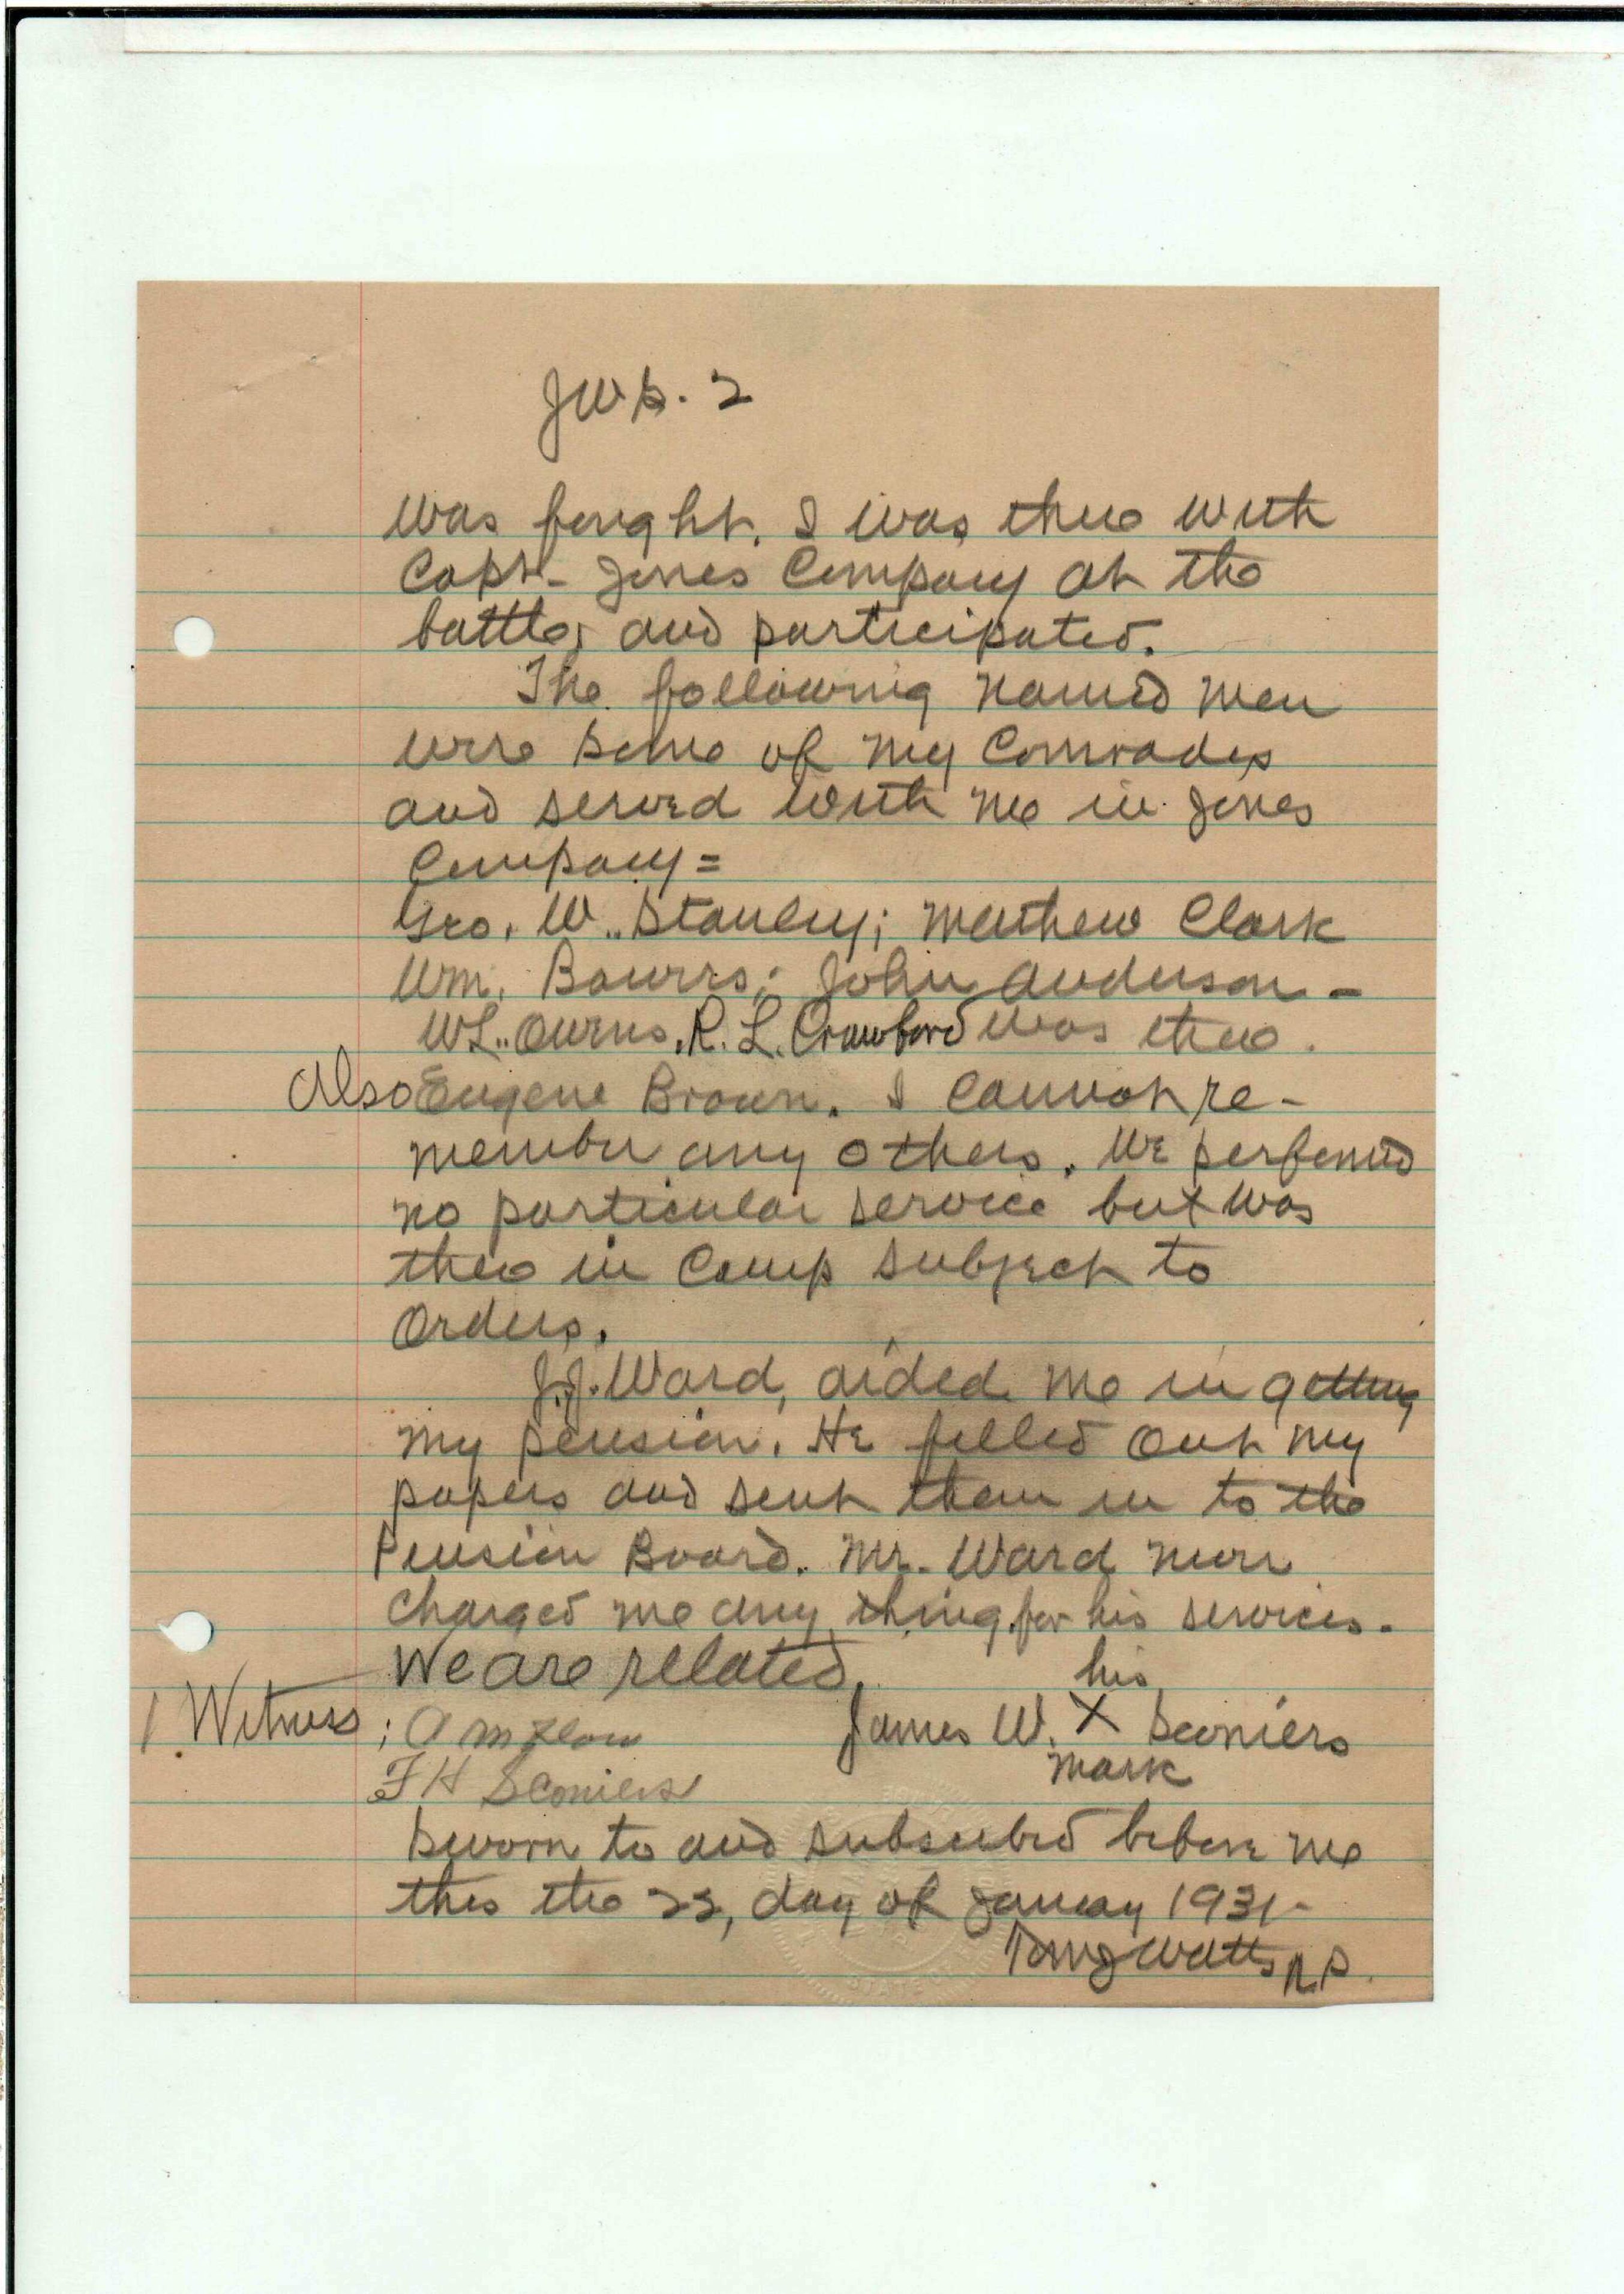 JWS. 2
was fought. I was there with
Capt- Jones Company at the
battle, and participated.
The following named men
were some of my Comrades
and served with me in Jones
Company =
Geo. W.. Stanley; Mathew Clark
Wm. Bowers; John Anderson -
WL.. Owens. R. L. Crawford was there.
Also Eugene Brown. I cannot re-
member any others. We performed
no particular service but was
there in Camp subject to
Orders.
J.J. Ward, aided me in getting
my pension. He filled out my
papers and sent them in to the
Pension Board. Mr. Ward never
charged me any thing for his services.
We are related.
his
1. Witness; James W. X Sconiers
mark
F H Sconiers
Sworn to and subscribed before me
this the 22, day of January 1931-
Watts N.P.